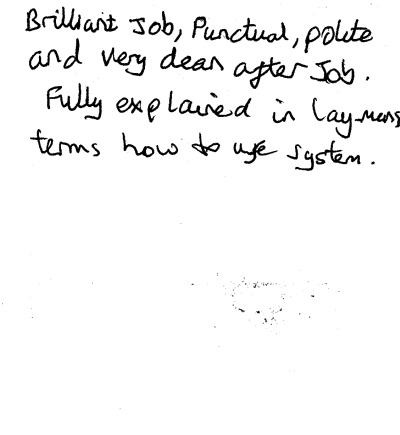 Brilliant Job, Punctual, polite
and very clean after Job.
Fully explained in Lay-mens
terms how to use system.